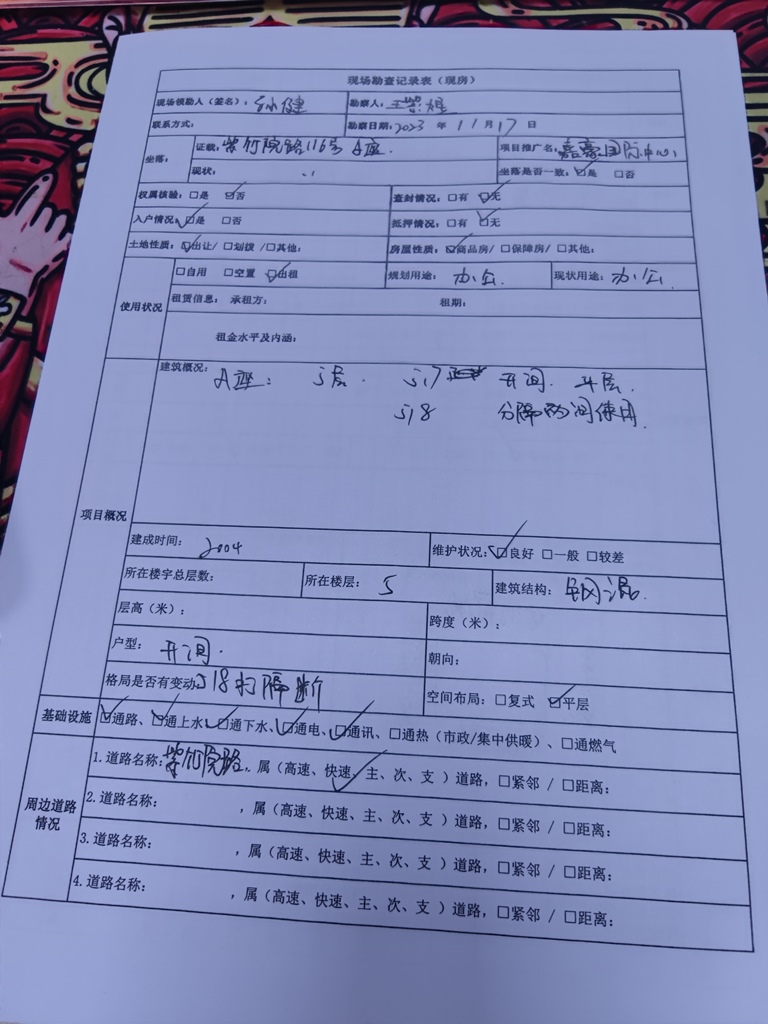 现场勘查记录表（现房）
现场领勘人（签名）：孙健 勘察人：
联系方式： 勘察日期：2023 年 11 月 17 日
坐落： 证载：紫竹院路116号A座. 项目推广名：嘉豪国际中心
现状： 坐落是否一致：☑是 □否
权属核验：□是 ☑否 查封情况：□有 ☑无
入户情况：☑是 □否 抵押情况：□有 ☑无
土地性质：☑出让/ □划拨 /□其他： 房屋性质：☑商品房/ □保障房/ □其他：
使用状况 □自用 □空置 ☑出租 规划用途：办公. 现状用途：办公.
租赁信息： 承租方： 租期：
租金水平及内涵：
项目概况 建筑概况：
A座： 5层. 517 开间. 平层.
518 分隔两间使用.
建成时间：2004 维护状况：☑良好 □一般 □较差
所在楼宇总层数： 所在楼层：5 建筑结构：钢混.
层高（米）： 跨度（米）：
户型：开间. 朝向：
格局是否有变动：518打隔断 空间布局：□复式 ☑平层
基础设施 ☑通路、☑通上水、☑通下水、☑通电、☑通讯、□通热（市政/集中供暖）、□通燃气
周边道路情况 1.道路名称：紫竹院路，属（高速、快速、主、次、支 ）道路，□紧邻 / □距离：
2.道路名称： ，属（高速、快速、主、次、支 ）道路，□紧邻 / □距离：
3.道路名称： ，属（高速、快速、主、次、支 ）道路，□紧邻 / □距离：
4.道路名称： ，属（高速、快速、主、次、支 ）道路，□紧邻 / □距离：